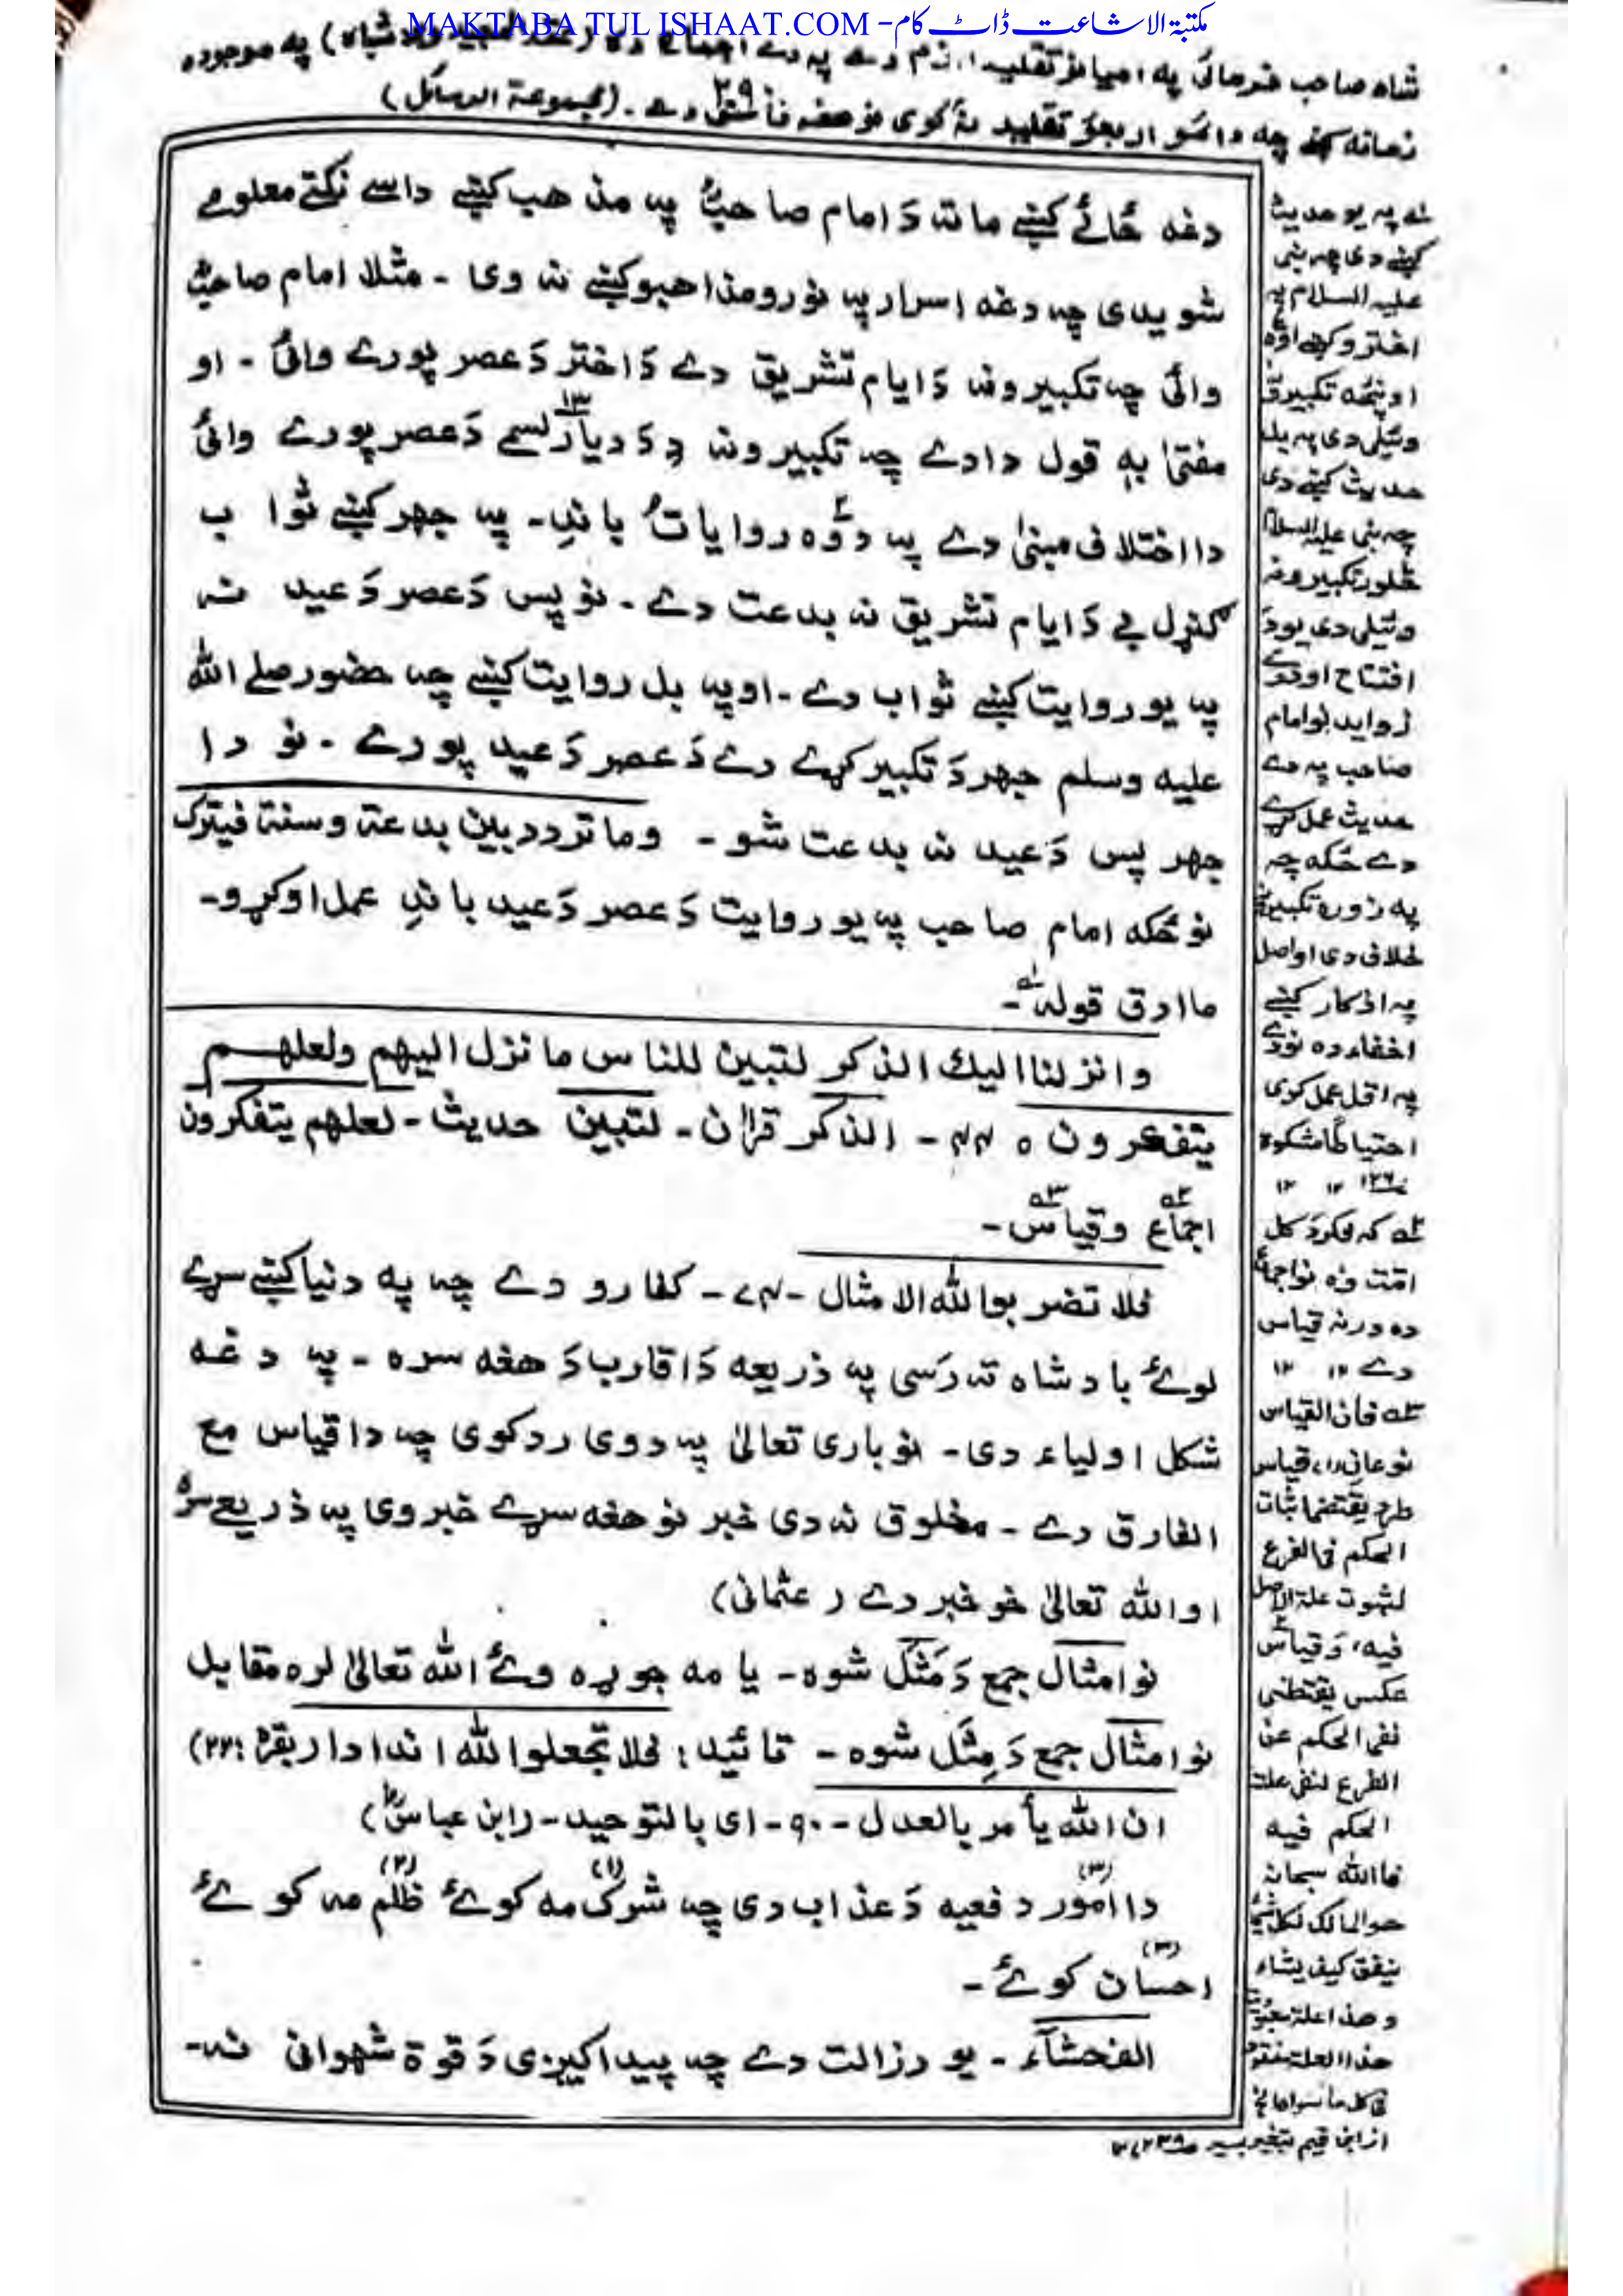 MAKTABA TUL ISHAAT.COM -مکتبۃ الاشاعت ڈاٹ کام
شاه صاحب فرمائی په تقلید په دے اجماع ده په موجوده
زمانه کښے چه دائمو اربعؤ تقلید نه کوی نو هغه فاسق دے ۔ (مجموعة الرسائل)
۲۹
دغه ځائے کښے ماته دَ امام صاحبؒ په مذهب کښے داسے نکتے معلومے
شویدی چه دغه اسرار په نورو مذاهبو کښے نه وی ۔ مثلا امام صاحبؒ
وائی چه تکبیرونه دَ ایام تشریق دے دَ اختر دَ عصر پورے وائیؑ ۔ او
مفتیٰ به قول دادے چه تکبیرونه دِ دَ دیارلسمے ۱۳ دَ عصر پورے وائی
دا اختلاف مبنیٰ دے په دوه ۲ روایاتو باندِ۔ په جهر کښے ثواب
کنړل بے دَ ایام تشریق نه بدعت دے ۔ نو پس دَ عصر دَ عید نه
په یو روایت کښے ثواب دے ۔ او په بل روایت کښے چه حضور صلے الله
علیه وسلم جهر دَ تکبیر کړے دے دَ عصر دَ عید پورے ۔ نو دا
جهر پس دَ عید نه بدعت شو ۔ وما تردد بین بدعة وسنة فیترک
نو ځکه امام صاحب په یو روایت دَ عصر دَ عید باندِ عمل اوکړو۔
ما ادق قوله ؎۱۔
وانزلنا الیك الذکر لتبین للناس ما نزل الیهم ولعلهم
یتفکرون ٥ ۴۴ ۔ الذکر قرآن ۔ لتبین حدیث ۔ لعلهم یتفکرون
اجماع ؎۲ وقیاس ؎۳ ۔
فلا تضربوا لله الامثال ۔ ۷۴ ۔ کفارو دے چه په دنیا کښے سړے
لوےٗ بادشاه ته رَسی په ذریعه دَ اقارب دَ هغه سره ۔ په دغه
شکل اولیاء دی ۔ نو باری تعالیٰ په دوی رد کوی چه دا قیاس مع
الفارق دے ۔ مخلوق نه دی خبر نو هغه سړے خبروی په ذریعے سره
او الله تعالیٰ خو خبر دے (عثمانی)
نو امثال جمع دَ مَثَل شوه ۔ یا مه جوړه وےٗ الله تعالیٰ لره مقابل
نو امثال جمع دَ مِثَل شوه ۔ تائید: فلا تجعلوا لله اندادا (بقره: ۲۲)
ان الله یأمر بالعدل ۔ ۹۰ ۔ ای بالتوحید ۔ (ابن عباسؓ)
دا امور (۳) دفعیه دَ عذاب دی چه شرک (۱) مه کوےٗ ظلم (۲) مه کوےٗ
احسان (۳) کوےٗ ۔
الفحشآء ۔ یو رزالت دے چه پیدا کیږی دَ قوة شهوانی نه۔
؎۱ په یو حدیث
کښے دی چه نبی
علیه السلام په
اختر وکښے اووه
او پنځه تکبیرونه
وئیلی دی په بل
حدیث کښے دی
چه نبی علیه السلام
څلور تکبیرونه
وئیلی دی یو دَ
افتتاح او درے
زواید نو امام
صاحب په دے
حدیث عمل کړے
دے ځکه چه
په زوره تکبیرونه
خلاف دی او اصل
په اذکار کښے
اخفاء ده نو دے
په اقل عمل کوی
احتیاطا مشکوة
۱۲۶ ۱۲ ۱۲
؎۲ که فکر دَ کل
امت وه نو اجماع
ده ورنه قیاس
دے ۱۲ ۱۲
؎۳ فان القیاس
نوعان (۱) قیاس
طرد یقتضی اثبات
الحکم فی الفرع
لثبوت علة الاصل
فیه، و قیاس
عکس یقتضی
نفی الحکم عن
الفرع لنفی علة
الحکم فیه
فالله سبحانه
هو المالک لکل شیٔ
ینفق کیف یشاء
وهذا علة معبودیت
هذا العلة مفقود
فی کل ما سواه
از ابن قیم بتغیر یسیر